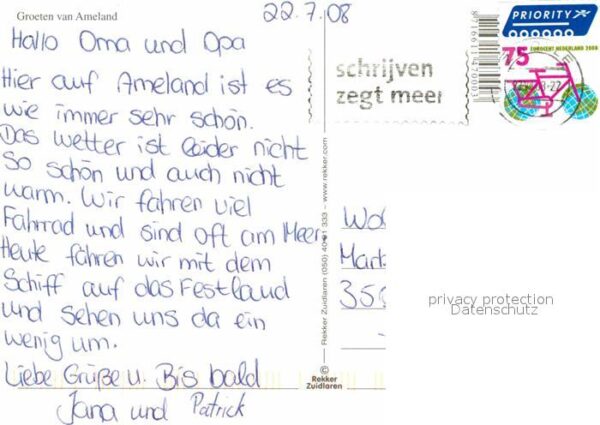 Groeten van Ameland
22.7.08
Hallo Oma und Opa
Hier auf Ameland ist es
wie immer sehr schön.
Das Wetter ist leider nicht
so schön und auch nicht
warm. Wir fahren viel
Fahrrad und sind oft am Meer.
Heute fahren wir mit dem
Schiff auf das Festland
und sehen uns da ein
wenig um.
Liebe Grüße u. Bis bald
Jana und Patrick
schrijven
zegt meer
PRIORITY
75 EUROCENT NEDERLAND 2008
Rekker Zuidlaren (050) 40 91 333 - www.rekker.com
©
Rekker
Zuidlaren
privacy protection
Datenschutz